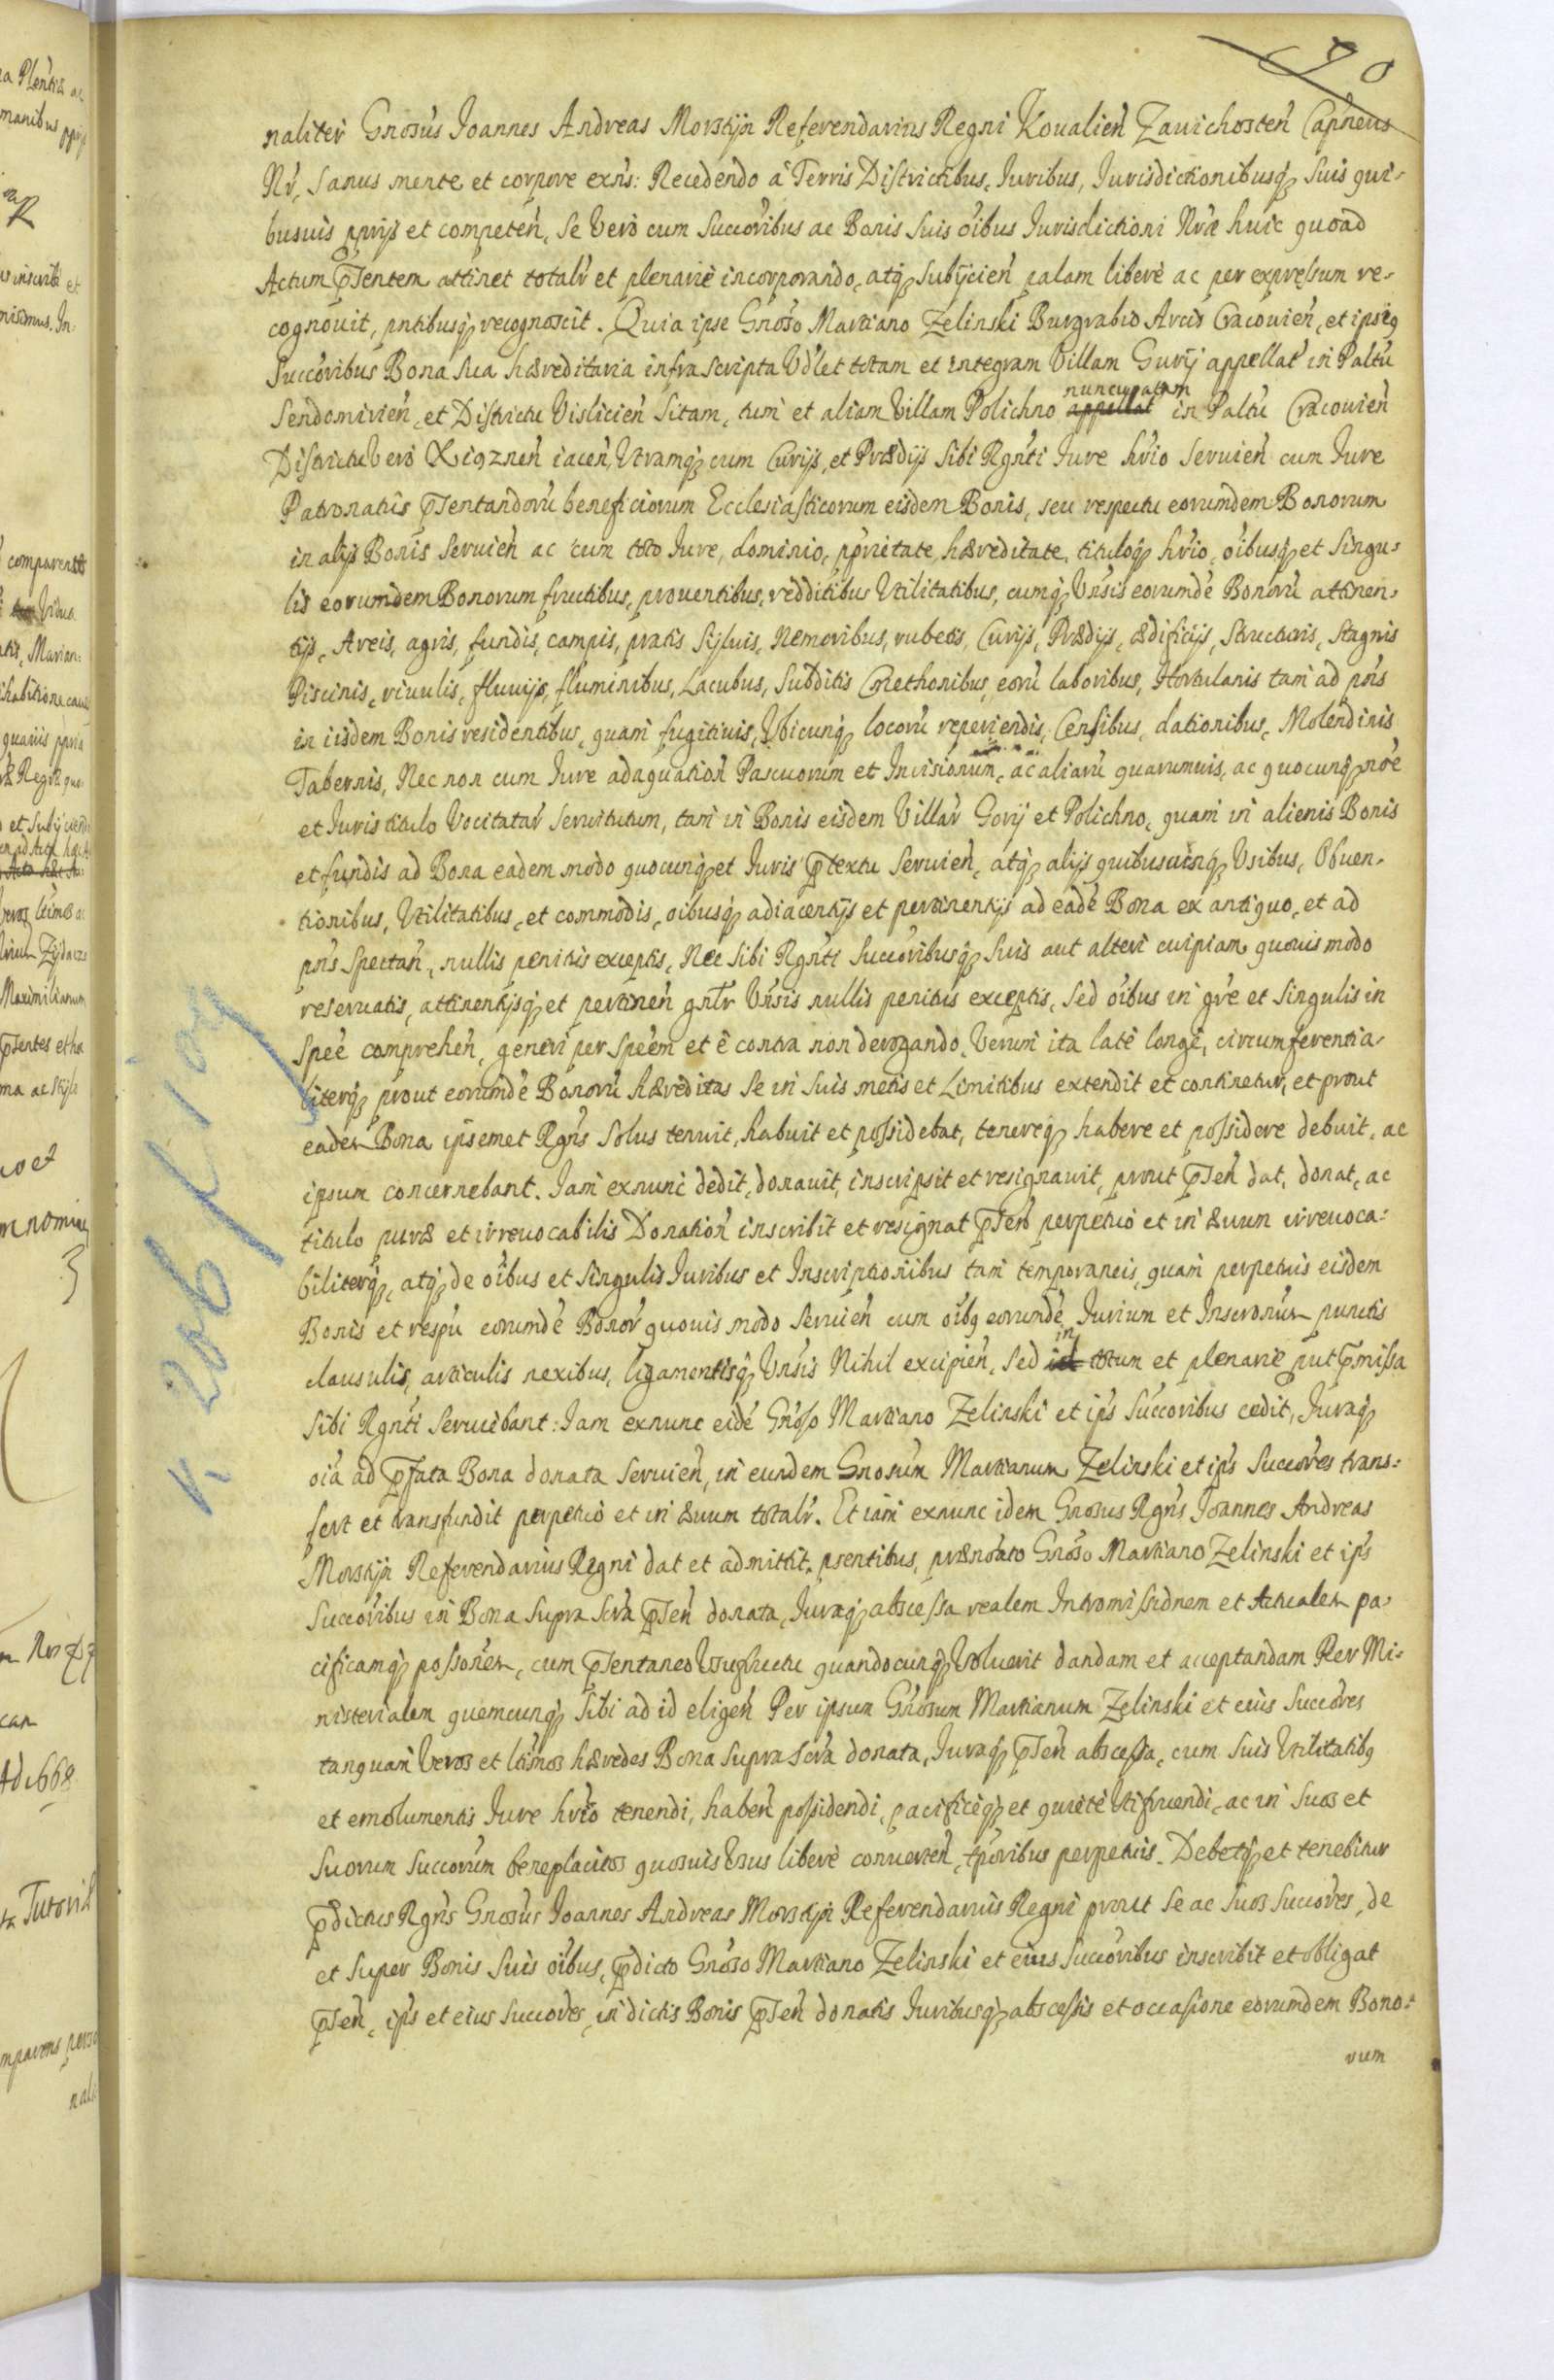 90
naliter Gnosus Joannes Andreas Morstÿn Referendarius Regni Koualień Zauichosteń Capneus
Nr, sanus mente et corpore exns: Recedendo a Terris Districtibus, Iuribus, Iurisdictionibusq suis qui-
busuis pprijs et competeń, Se vero cum Succoribus ac Bonis Suis oibus Iurisdictioni Nræ huic quoad
Actum pſentem attinet totalr et plenariè incorporando, atq subÿcień palam liberè ac per expressum re-
cognouit, pntibusq recognoscit. Quia ipse Gnoso Martiano Zelinski Burgrabio Arcis Cracouień, et ipsiq
Succoribus Bona sua hæreditaria infra scripta Vdlet totam et integram Villam Gurÿ appellat in Paltu
Sendomirień, et Districtu Vislicień sitam, tum et aliam Villam Polichno nuncupatam appellat in Paltu Cracouień
Districtu vero Xiązneń iaceń, Vtramq cum Curijs, et Prædijs sibi Rgnti Iure hrio seruień cum Iure
Patronatûs pſentandoru beneficiorum Ecclesiasticorum eisdem Bonis, seu respectu eorumdem Bonorum
in alijs Bonis seruień ac cum toto Iure, dominio, pprietate, hæreditate, tituloq hrio, oibusq et singu-
lis eorumdem Bonorum fructibus, prouentibus, redditibus Vtilitatibus, cumq Vnsis eorumdē Bonoru attinen-
tijs, Areis, agris, fundis, campis, pratis Syluis, Nemoribus, rubetis, Curijs, Prædijs, ædificijs, Structuris, Stagnis
Piscinis, riuulis, fluuijs, fluminibus, Lacubus, Subditis Cmethonibus, eoru laboribus, Hortulanis tam ad pns
in iisdem Bonis residentibus, quam fugitiuis, Vbicunq locoru reperiendis, Censibus, dationibus, Molendinis
Tabernis, Nec non cum Iure adaquation Pascuorum et Incisionum, ac aliaru quarumuis, ac quocunq noe
et Iuris titulo Vocitatar Seruitutum, tam in Bonis eisdem Villar Gorij et Polichno, quam in alienis Bonis
et fundis ad Bona eadem modo quocunq et Iuris ptextu Seruień, atq alijs quibusuisnq Vsibus, Obuen-
tionibus, Vtilitatibus, et commodis, oibusq adiacentijs et pertinentijs ad eadē Bona ex antiquo, et ad
pns spectań, nullis penitis exceptis, Nec sibi Rgnti Succoribusq suis aut alteri cuipiam quouis modo
reseruatis, attinentijsq et pertineń gnlr Vnsis nullis penitus exceptis, sed oibus in gre et singulis in
speē compreheń, generi per speēm et è contra non derogando. Verum ita latè longè, circumferentia-
literq prout eorumdē Bonoru hæreditas se in suis metis et Limitibus extendit et continetur, et prout
eadem Bona ipsemet Rgns solus tenuit, habuit et possidebat, tenereq habere et possidere debuit, ac
ipsum concernebant. Iam exnunc dedit, donauit, inscripsit et resignauit, prout pſeń dat, donat, ac
titulo puræ et irreuocabilis Donation inscribit et resignat pſeń perpetuo et in æuum irreuoca-
biliterq, atq de oibus et singulis Iuribus et Inscriptionibus tam temporaneis, quam perpetuis eisdem
Bonis et respu eorumdē Bonor quouis modo seruień cum oibq eorundē Iurium et Inscronum punctis
clausulis, articulis nexibus, ligamentisq Vnsis Nihil excipień, sed id in totum et plenariè put pmissa
sibi Rgnti seruiebant: Iam exnunc eidē Gnoso Martiano Zelinski et ips Succoribus cedit, Iuraq
oia ad pfata Bona donata seruień, in eundem Gnosum Martianum Zelinski et ips Succores trans-
fert et transfundit perpetuò et in æuum totalr. Et iam exnunc idem Gnosus Rgns Joannes Andreas
Morstÿn Referendarius Regni dat et admittit, psentibus, prænoato Gnoso Martiano Zelinski et ips
Succoribus in Bona supra scra pſeń donata, Iuraq abscessa realem Intromissionem et Actualem pa-
cificamq possonem, cum pſentaneo Vsufructu quandocunq Voluerit dandam et acceptandam Per Mi-
nisterialem quemcunq sibi ad id eligeń Per ipsum Gnosum Martianum Zelinski et eius Succores
tanquam Veros et ltimos hæredes Bona supra scra donata, Iuraq pſeń abscessa, cum suis Vtilitatibq
et emolumentis Iure hrio tenendi, habeń possidendi, pacificeq et quietè Vtifruendi, ac in suos et
suorum Succorum beneplacitos quosuis Vsus liberè conuerteń, tporibus perpetuis. Debetq et tenebitur
pdictus Rgns Gnosus Joannes Andreas Morstÿn Referendarius Regni prout se ac suos Succores, de
et super Bonis suis oibus, pdicto Gnoso Martiano Zelinski et eius Succoribus inscribit et obligat
pſeń, ips et eius Succores, in dictis Bonis pſeń donatis Iuribusq abscessis et occasione eorumdem Bono-
rum